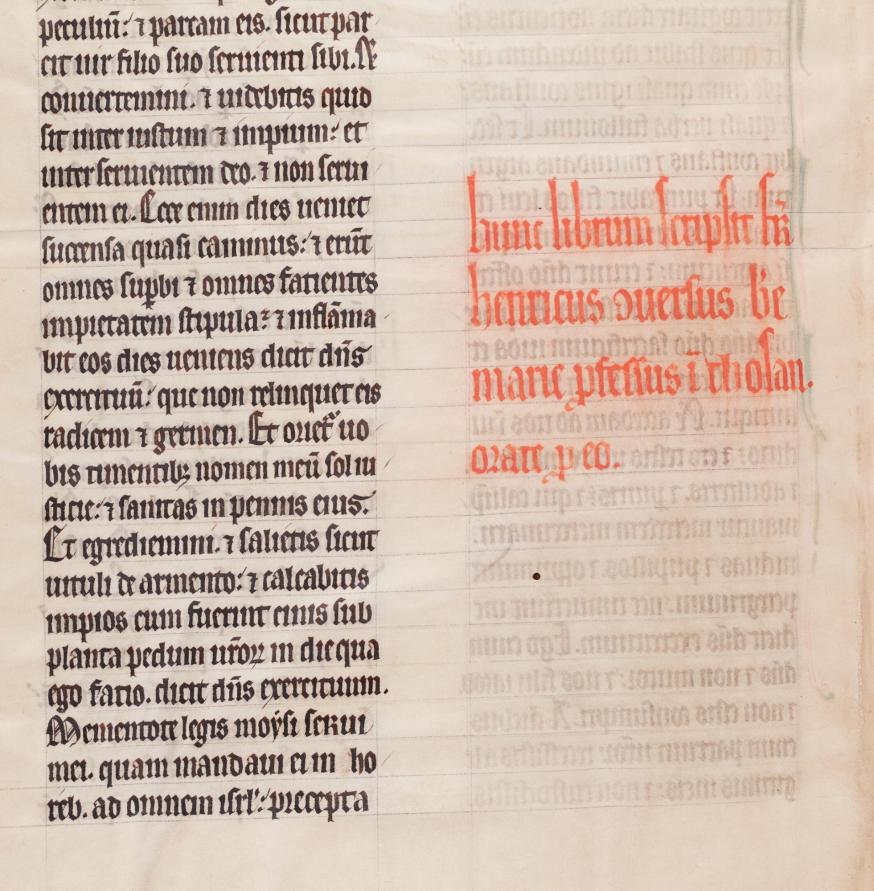 peculiū: ⁊ parcam eis. sicut par
cit uir filio suo seruienti sibi. Et
conuertemini. ⁊ uidebitis quid
sit inter iustum ⁊ impium: et
inter seruientem deo. ⁊ non serui
entem ei. Ecce enim dies ueniet
succensa quasi caminus: ⁊ erūt
omnes suꝑbi ⁊ omnes facientes
impietatem stipula: ⁊ inflāma
bit eos dies ueniens dicit dn̄s
exercituū: que non relinquet eis
radicem ⁊ germen. Et oriet᷑ uo
bis timentibꝫ nomen meū sol iu
sticie: ⁊ sanitas in pennis eius.
Et egrediemini. ⁊ salietis sicut
uituli de armento: ⁊ calcabitis
impios cum fuerint cinis sub
planta pedum ur̄oꝝ in die qua
ego facio. dicit dn̄s exercituum.
Mementote legis moẏsi serui
mei. quam mandaui ei in ho
reb. ad omnem isrl': precepta
hunc librum scripsit fr̄
henricus ↄuersus be
marie ꝓfessus ī cholan.
orate ꝓ eo.